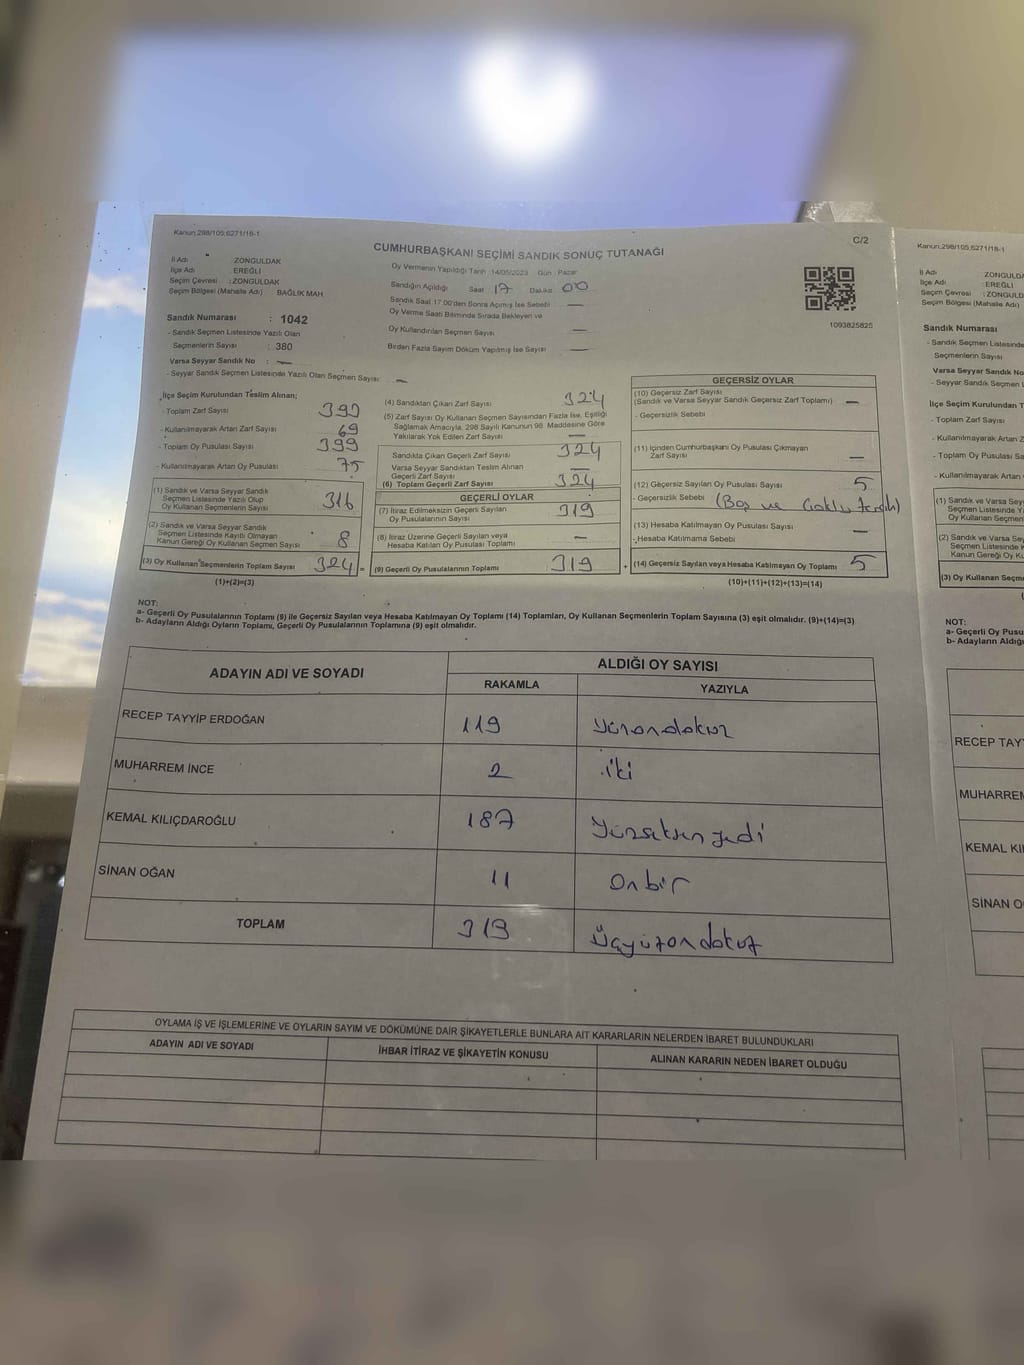 Kanun;298/105,6271/18-1
C/2
CUMHURBAŞKANI SEÇİMİ SANDIK SONUÇ TUTANAĞI
İl Adı : ZONGULDAK
İlçe Adı : EREĞLİ
Seçim Çevresi : ZONGULDAK
Seçim Bölgesi (Mahalle Adı) : BAĞLIK MAH
Sandık Numarası : 1042
- Sandık Seçmen Listesinde Yazılı Olan
Seçmenlerin Sayısı : 380
Varsa Seyyar Sandık No : —
- Seyyar Sandık Seçmen Listesinde Yazılı Olan Seçmen Sayısı: —
Oy Vermenin Yapıldığı Tarih :14/05/2023 Gün : Pazar
Sandığın Açıldığı Saat : 17 Dakika : 00
Sandık Saat 17:00'den Sonra Açılmış İse Sebebi : —
Oy Verme Saati Bitiminde Sırada Bekleyen ve
Oy Kullandırılan Seçmen Sayısı —
Birden Fazla Sayım Döküm Yapılmış İse Sayısı —
1093825825
İlçe Seçim Kurulundan Teslim Alınan;
- Toplam Zarf Sayısı
- Kullanılmayarak Artan Zarf Sayısı 69
- Toplam Oy Pusulası Sayısı 399
- Kullanılmayarak Artan Oy Pusulası 75
(1) Sandık ve Varsa Seyyar Sandık
Seçmen Listesinde Yazılı Olup
Oy Kullanan Seçmenlerin Sayısı 316
(2) Sandık ve Varsa Seyyar Sandık
Seçmen Listesinde Kayıtlı Olmayan
Kanun Gereği Oy Kullanan Seçmen Sayısı 8
(3) Oy Kullanan Seçmenlerin Toplam Sayısı 324 =
(1)+(2)=(3)
(4) Sandıktan Çıkan Zarf Sayısı 324
(5) Zarf Sayısı Oy Kullanan Seçmen Sayısından Fazla İse, Eşitliği
Sağlamak Amacıyla, 298 Sayılı Kanunun 98. Maddesine Göre
Yakılarak Yok Edilen Zarf Sayısı —
Sandıkta Çıkan Geçerli Zarf Sayısı 324
Varsa Seyyar Sandıktan Teslim Alınan
Geçerli Zarf Sayısı —
(6) Toplam Geçerli Zarf Sayısı 324
GEÇERLİ OYLAR
(7) İtiraz Edilmeksizin Geçerli Sayılan
Oy Pusulalarının Sayısı 319
(8) İtiraz Üzerine Geçerli Sayılan veya
Hesaba Katılan Oy Pusulası Toplamı —
(9) Geçerli Oy Pusulalarının Toplamı 319 +
GEÇERSİZ OYLAR
(10) Geçersiz Zarf Sayısı
(Sandık ve Varsa Seyyar Sandık Geçersiz Zarf Toplamı) —
- Geçersizlik Sebebi
(11) İçinden Cumhurbaşkanı Oy Pusulası Çıkmayan
Zarf Sayısı —
(12) Geçersiz Sayılan Oy Pusulası Sayısı 5
- Geçersizlik Sebebi (Boş ve Çoklu tercih)
(13) Hesaba Katılmayan Oy Pusulası Sayısı —
- Hesaba Katılmama Sebebi
(14) Geçersiz Sayılan veya Hesaba Katılmayan Oy Toplamı 5
(10)+(11)+(12)+(13)=(14)
NOT:
a- Geçerli Oy Pusulalarının Toplamı (9) ile Geçersiz Sayılan veya Hesaba Katılmayan Oy Toplamı (14) Toplamları, Oy Kullanan Seçmenlerin Toplam Sayısına (3) eşit olmalıdır. (9)+(14)=(3)
b- Adayların Aldığı Oyların Toplamı, Geçerli Oy Pusulalarının Toplamına (9) eşit olmalıdır.
ADAYIN ADI VE SOYADI
ALDIĞI OY SAYISI
RAKAMLA YAZIYLA
RECEP TAYYİP ERDOĞAN 119 Yüzondokuz
MUHARREM İNCE 2 iki
KEMAL KILIÇDAROĞLU 187 Yüzseksenyedi
SİNAN OĞAN 11 Onbir
TOPLAM 319 Üçyüzondokuz
OYLAMA İŞ VE İŞLEMLERİNE VE OYLARIN SAYIM VE DÖKÜMÜNE DAİR ŞİKAYETLERLE BUNLARA AİT KARARLARIN NELERDEN İBARET BULUNDUKLARI
ADAYIN ADI VE SOYADI İHBAR İTİRAZ VE ŞİKAYETİN KONUSU ALINAN KARARIN NEDEN İBARET OLDUĞU
Kanun;298/105,6271/18-1
İl Adı ZONGULDA
İlçe Adı : EREĞLİ
Seçim Çevresi : ZONGULD
Seçim Bölgesi (Mahalle Adı)
Sandık Numarası
- Sandık Seçmen Listesinde
Seçmenlerin Sayısı
Varsa Seyyar Sandık No
- Seyyar Sandık Seçmen
İlçe Seçim Kurulundan T
- Toplam Zarf Sayısı
- Kullanılmayarak Artan Z
- Toplam Oy Pusulası Sa
- Kullanılmayarak Artan
(1) Sandık ve Varsa Sey
Seçmen Listesinde Y
Oy Kullanan Seçmen
(2) Sandık ve Varsa Se
Seçmen Listesinde K
Kanun Gereği Oy Ku
(3) Oy Kullanan Seçm
NOT:
a- Geçerli Oy Pusu
b- Adayların Aldığı
RECEP TAY
MUHARREM
KEMAL KI
SİNAN O